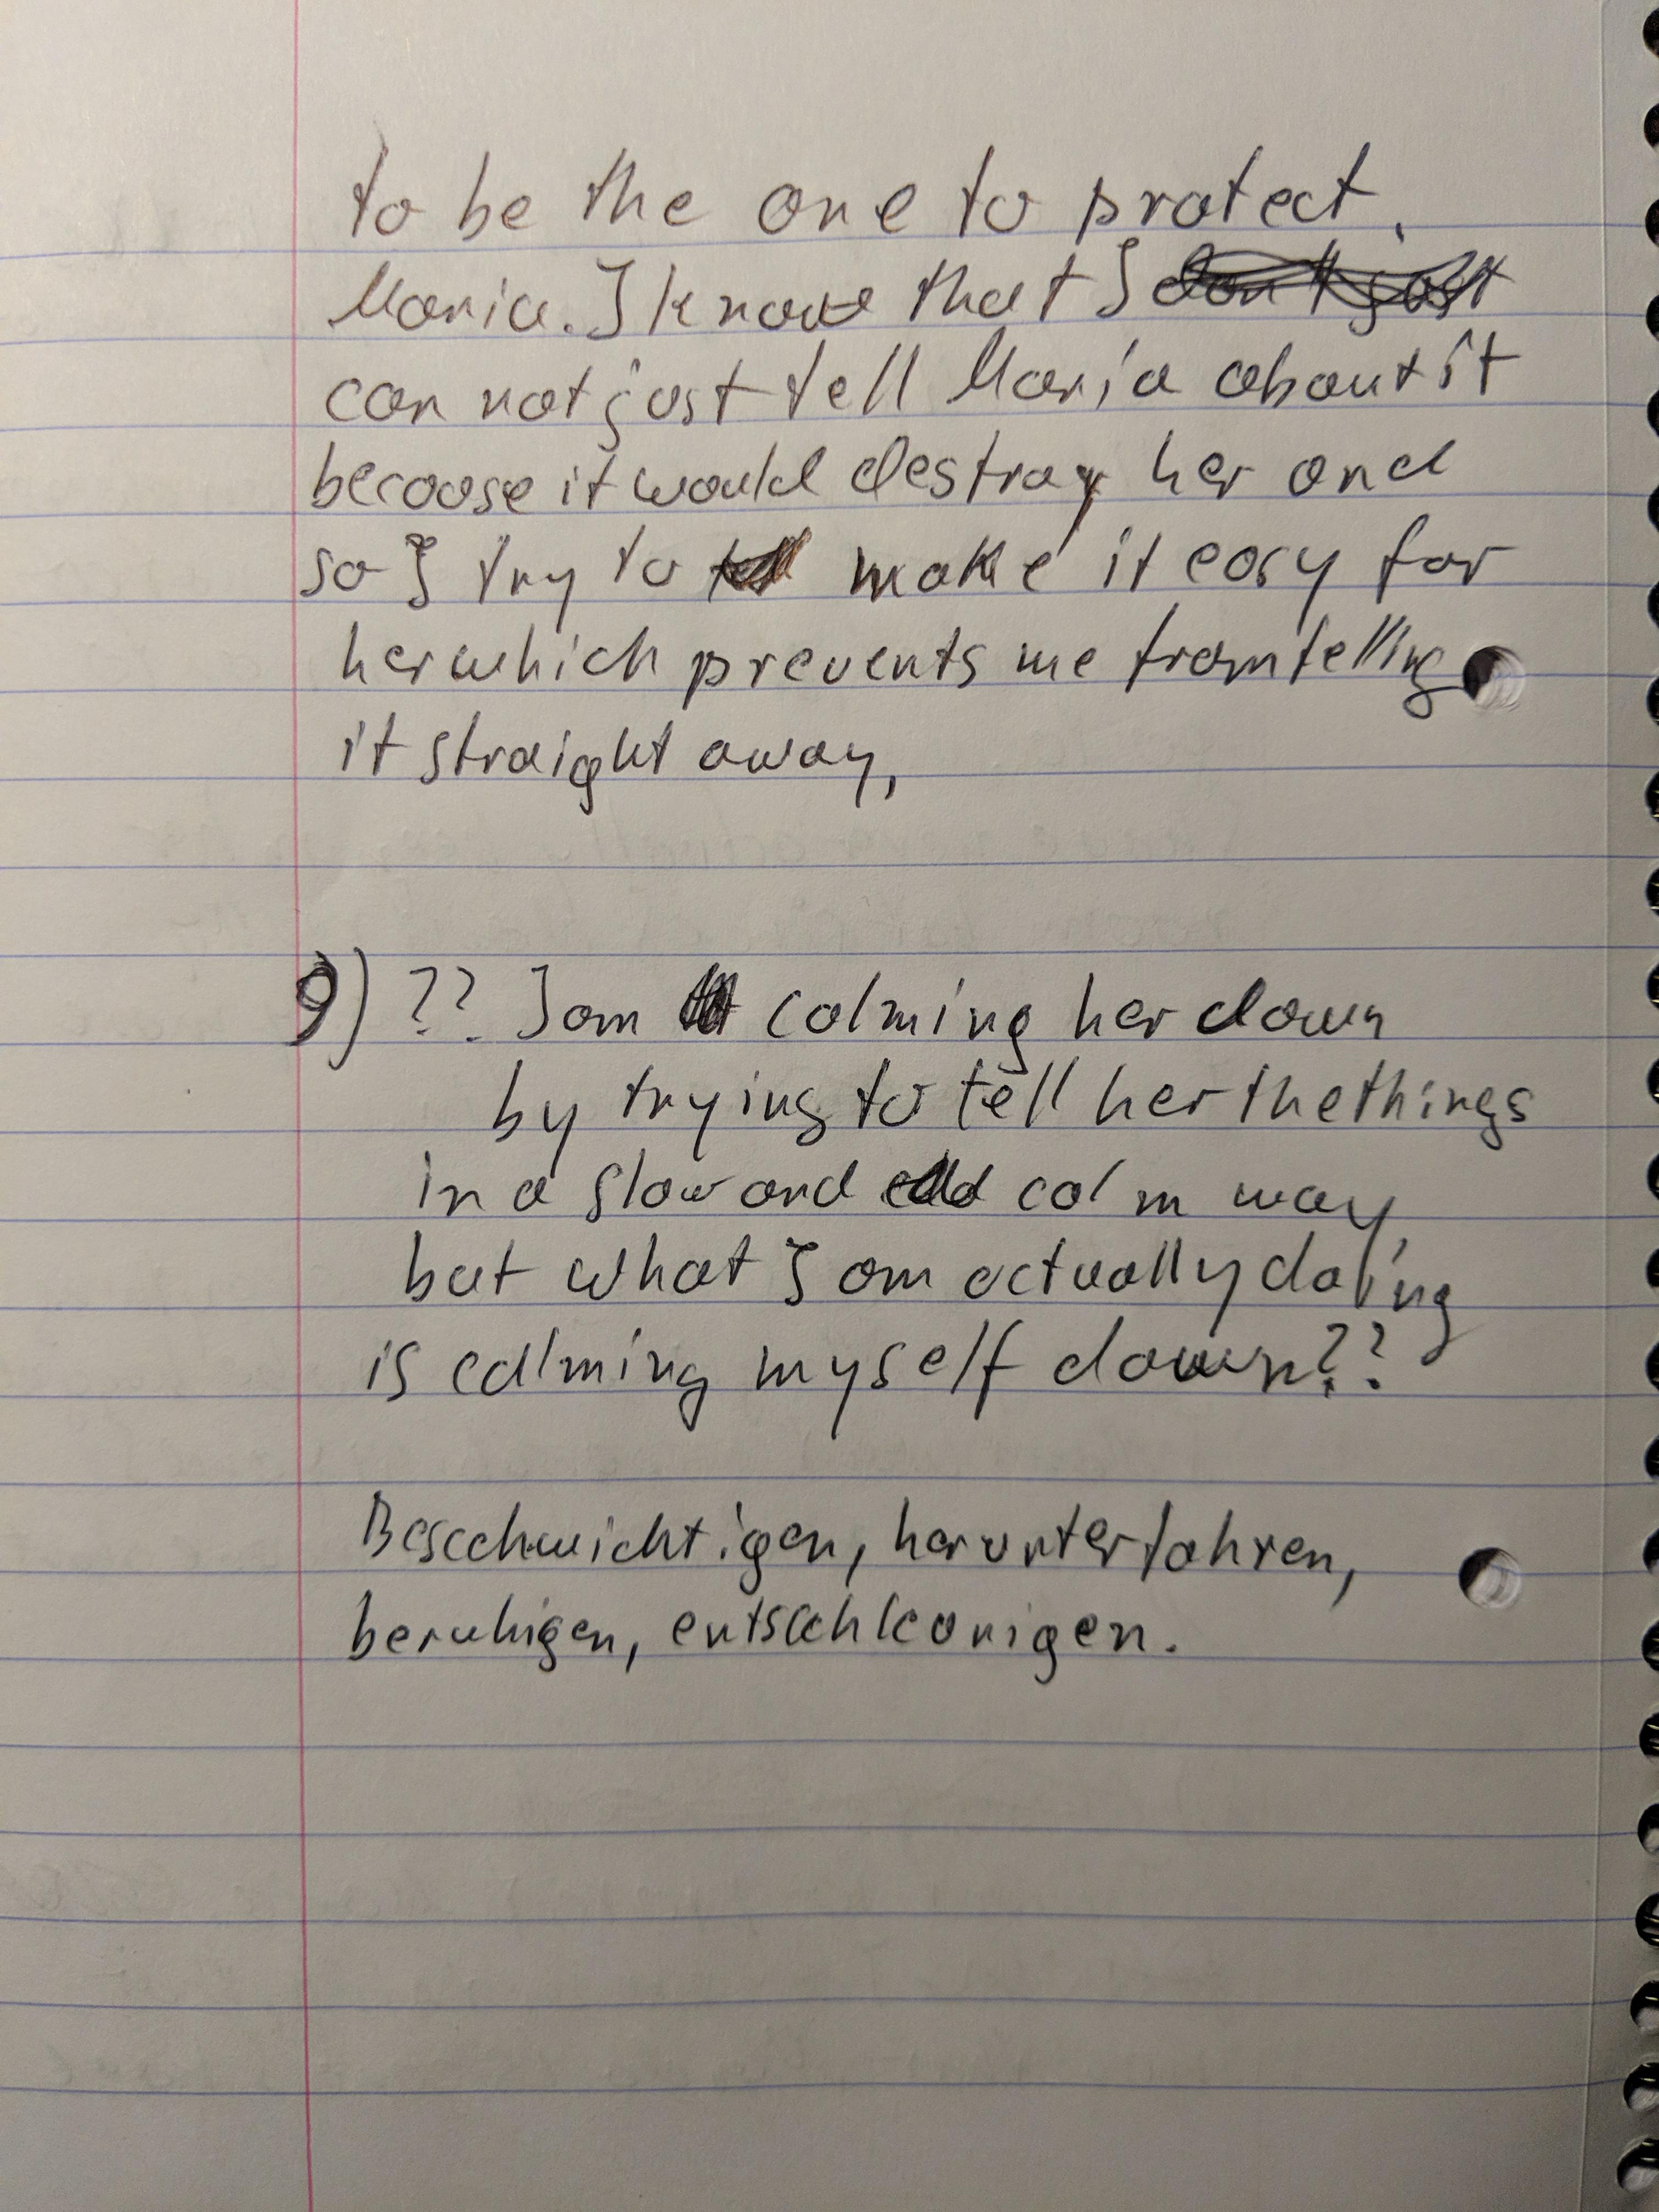 to be the one to protect.
Maria. I know that I
can not just tell Maria about it
becoose it would destroy her and
so I try to make it easy for
her which prevents me from telling
it straight away,
9) ?? I am calming her down
by trying to tell her the things
in a slow and calm way,
but what I am actually doing
is calming myself down??
Bescchwichtigen, herunterfahren,
beruhigen, entschleonigen.